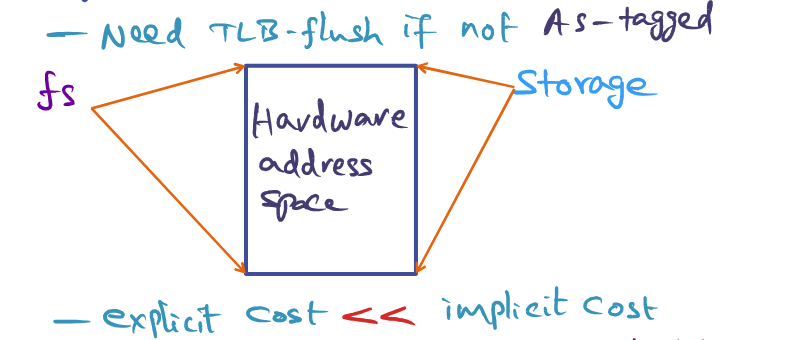 — Need TLB-flush if not AS-tagged
fs
Storage
Hardware
address
space
— explicit cost << implicit cost